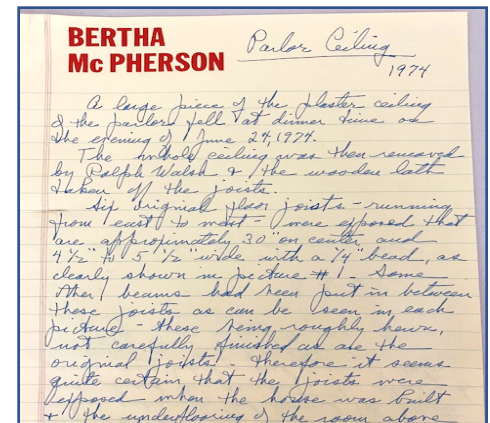 BERTHA
Mc PHERSON
Parlor Ceiling
1974
A large piece of the plaster ceiling
of the parlor fell at dinner time on
the evening of June 24, 1974.
The whole ceiling was then removed
by Ralph Walsh & the wooden lath
taken off the joists.
Six original floor joists - running
from east to west - were exposed that
are approximately 30" on center and
4 1/2" to 5 1/2" wide with a 1/4" bead, as
clearly shown in picture #1. Some
other beams had been put in between
these joists as can be seen in each
picture - these being roughly hewn,
not carefully finished as are the
original joists. Therefore it seems
quite certain that the joists were
exposed when the house was built
& the underflooring of the room above